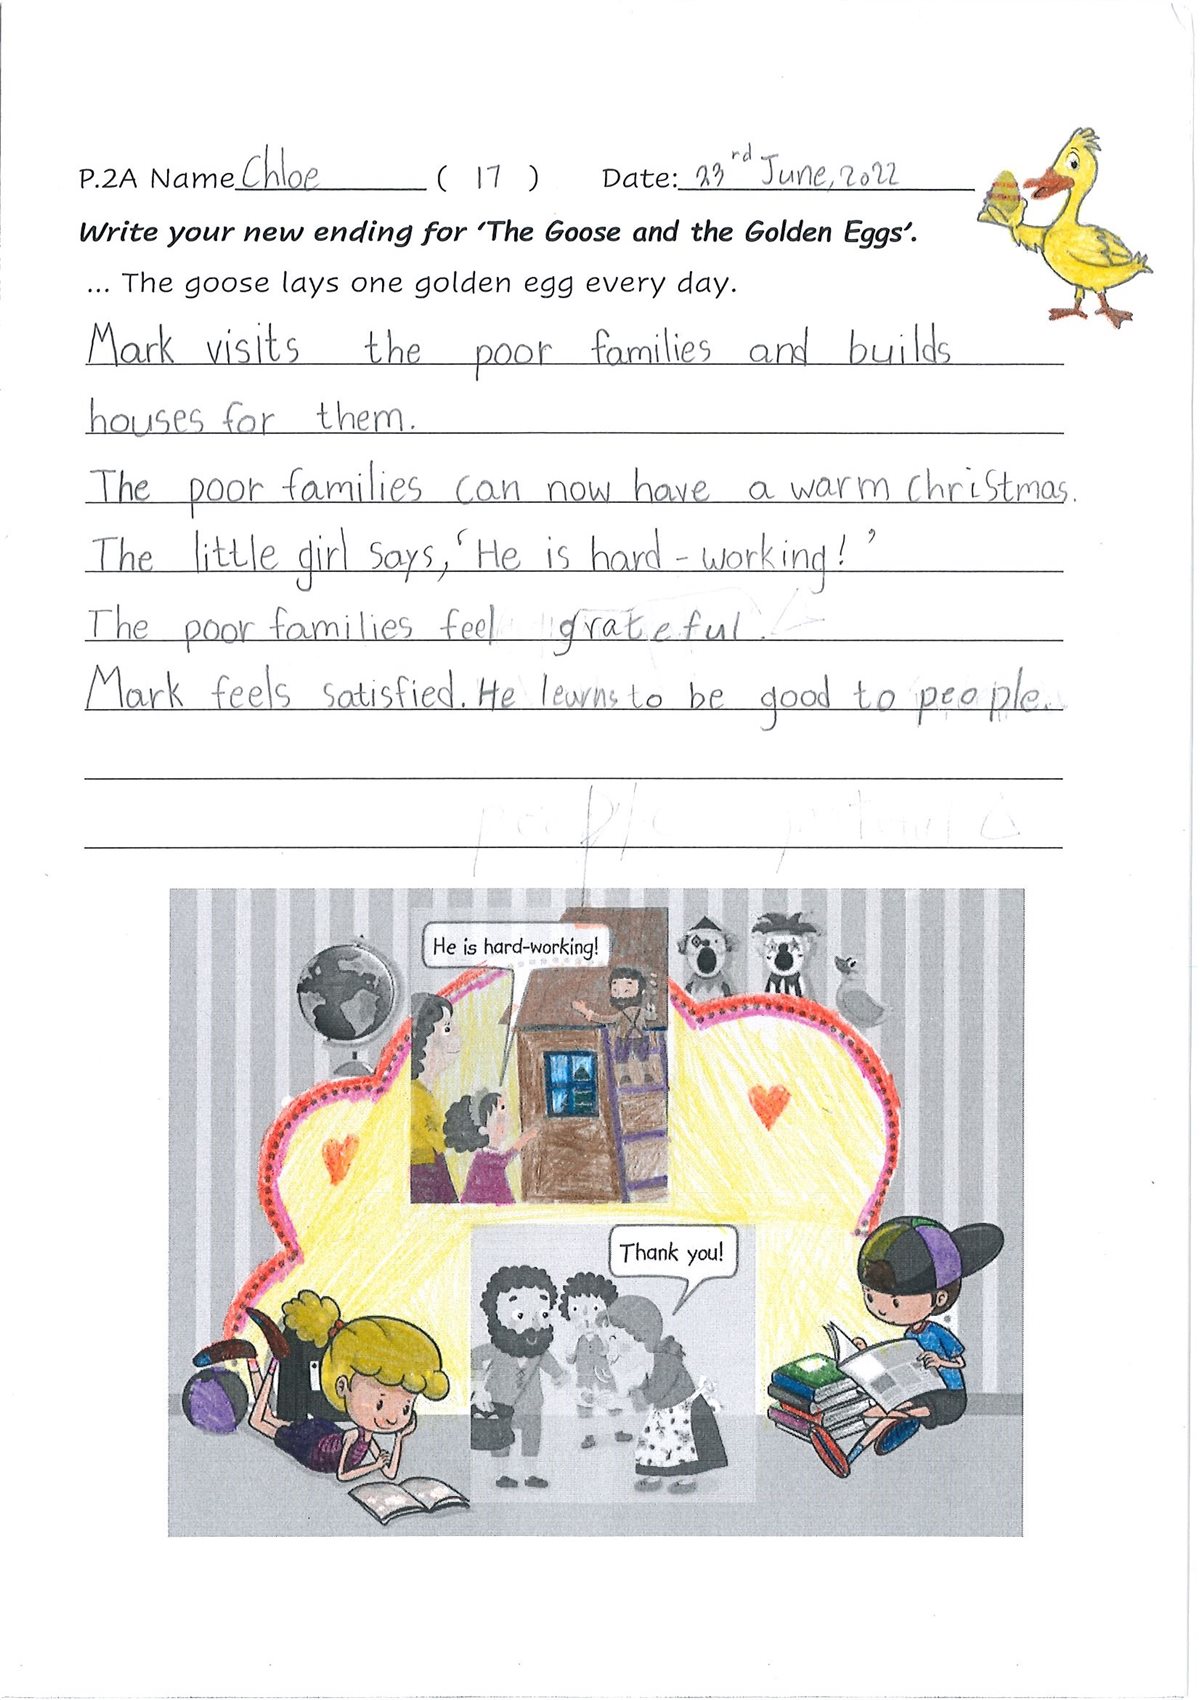 P.2A Name Chloe ( 17 ) Date: 23rd June, 2022
Write your new ending for ‘The Goose and the Golden Eggs’.
... The goose lays one golden egg every day.
Mark visits the poor families and builds
houses for them.
The poor families can now have a warm christmas.
The little girl says, ‘He is hard-working!’
The poor families feel grateful.
Mark feels satisfied. He learns to be good to people.
people
He is hard-working!
Thank you!